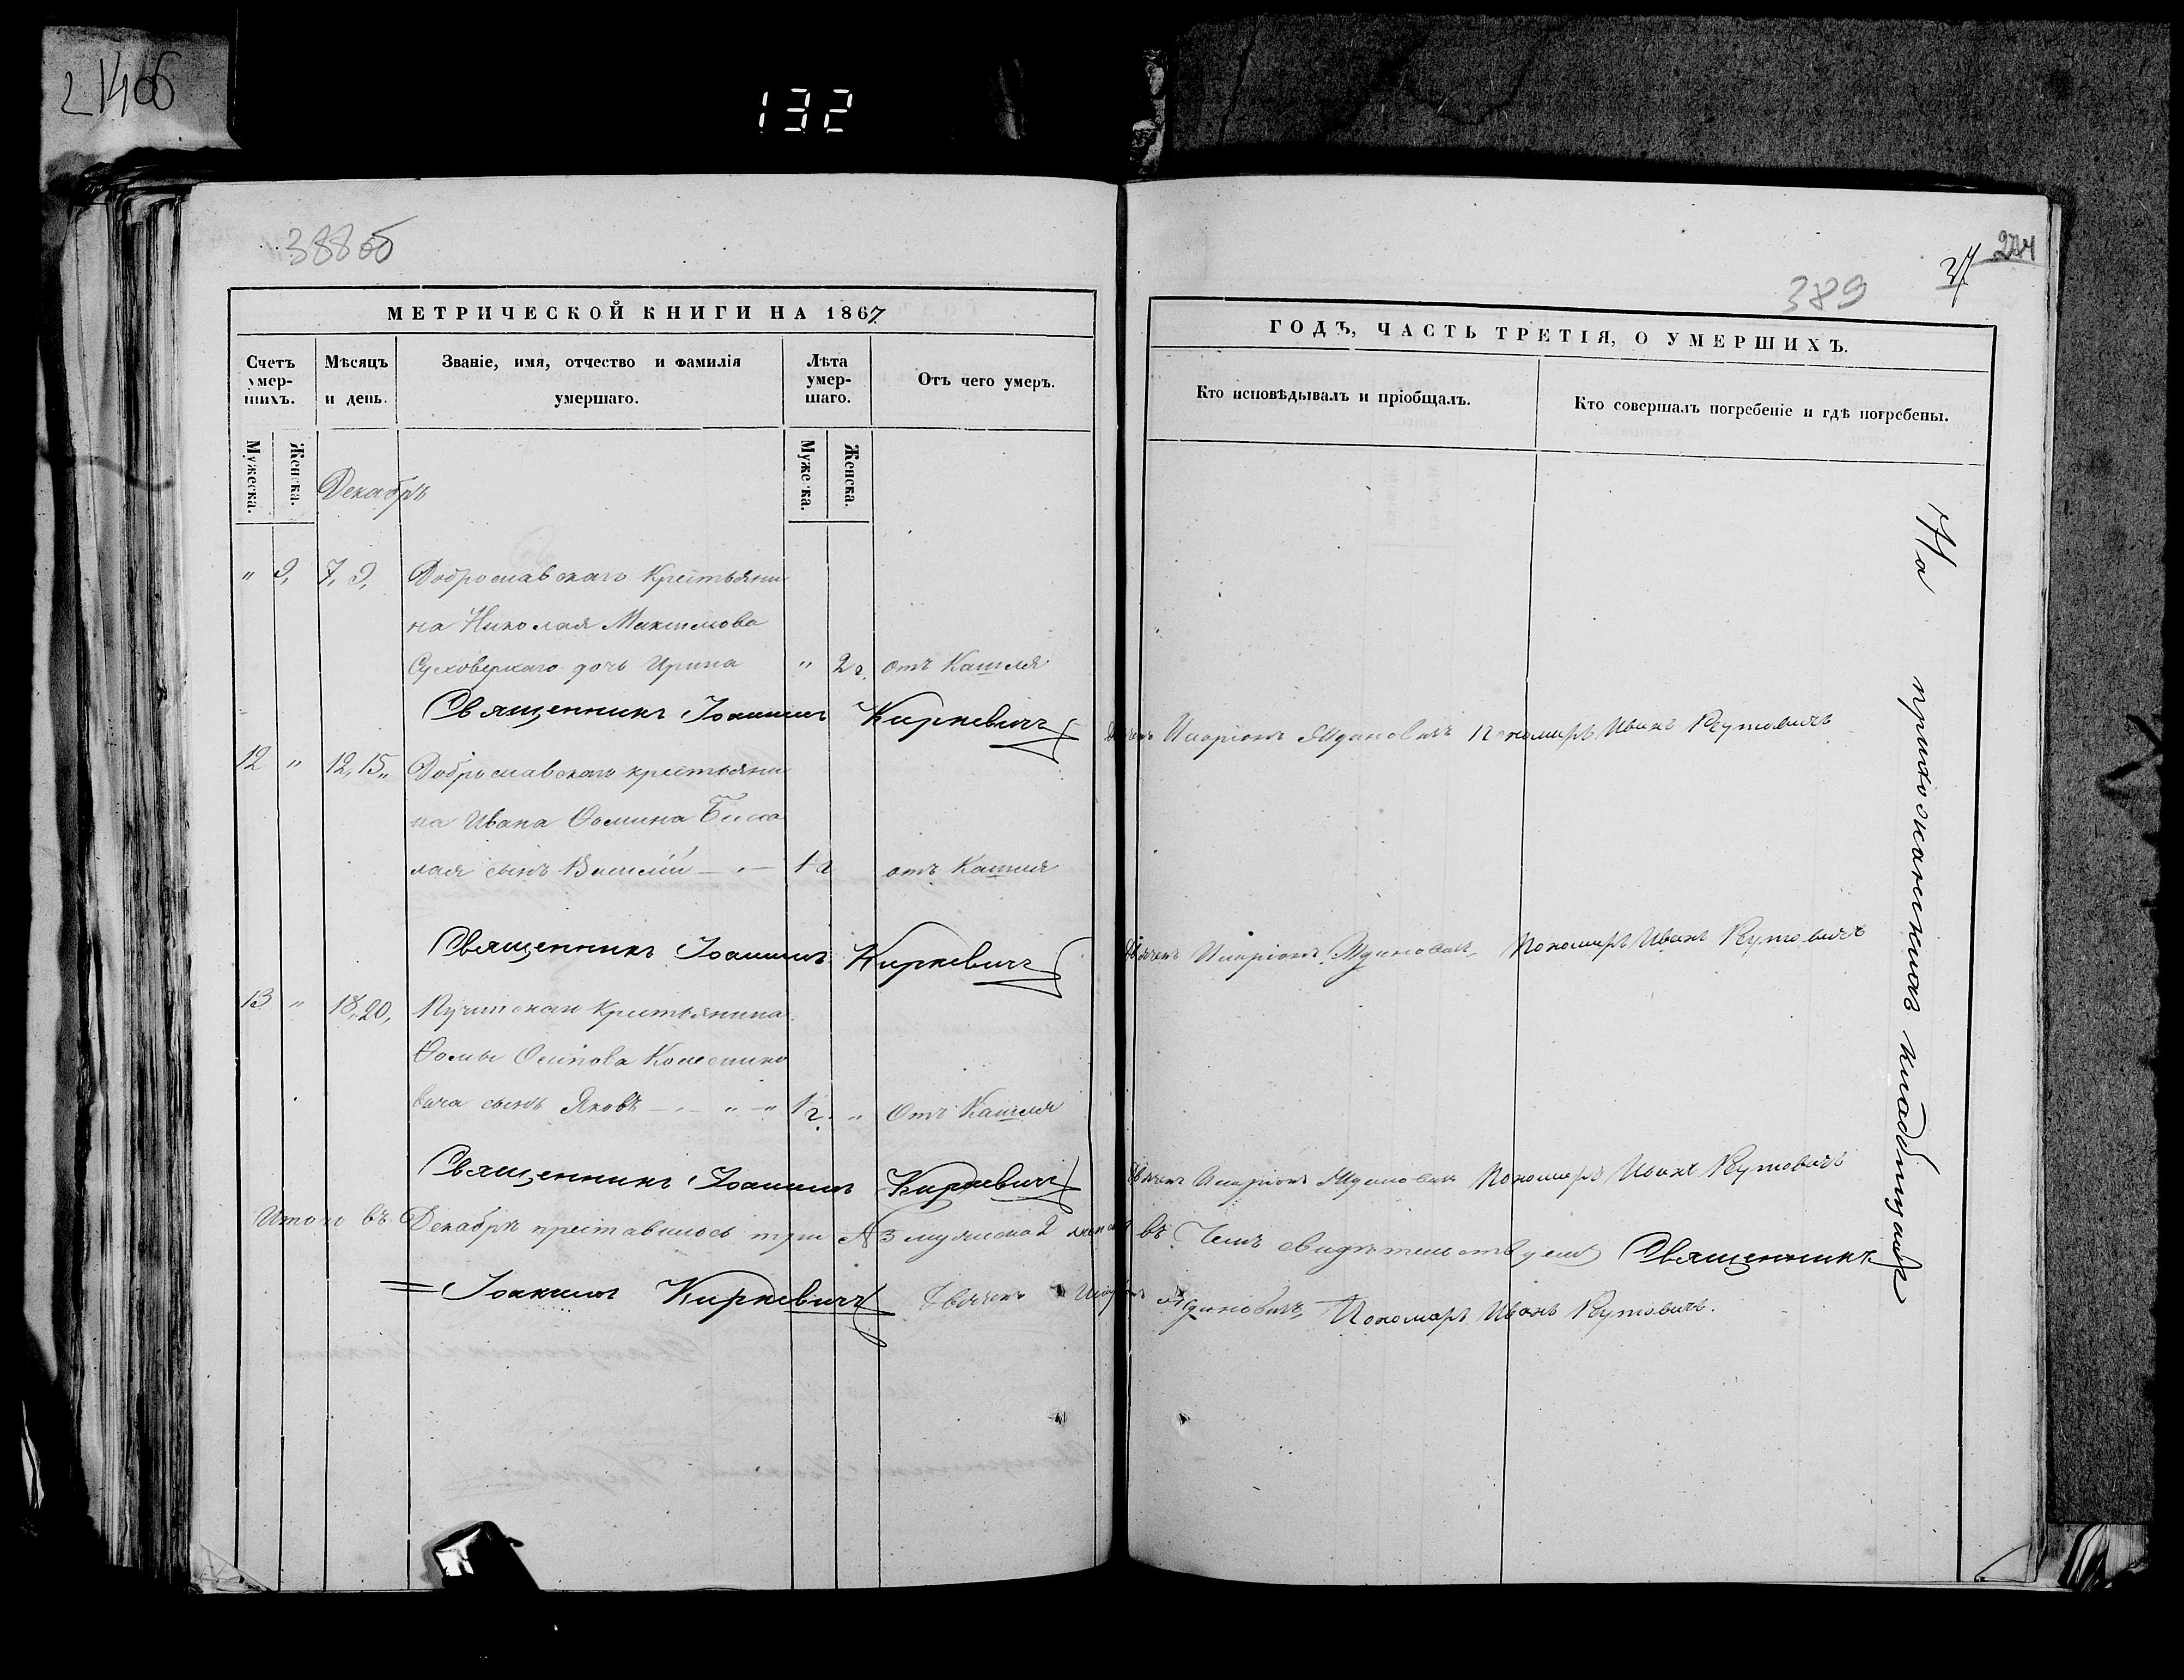 132
388об
389
274
МЕТРИЧЕСКОЙ КНИГИ НА 1867
ГОДЪ, ЧАСТЬ ТРЕТІЯ, О УМЕРШИХЪ.
Счетъ умер-шихъ.
Мѣсяцъ и день.
Званіе, имя, отчество и фамилія умершаго.
Лѣта умер-шаго.
Отъ чего умеръ.
Кто исповѣдывалъ и пріобщалъ.
Кто совершалъ погребеніе и гдѣ погребены.
Мужеска. Женска.
Мужеска. Женска.
Декабрь
" 9, 7, 9, Доброславскаго Крестьяни
на Николая Максимова
Суховерхаго дочь Ирина " 2 г. отъ Кашля
Священникъ Іоакимъ Киркевичъ
Иларіонъ Пономарь Иванъ Реутовичъ
12 " 12, 15,, Доброславскаго крестьяни
на Ивана Ѳомина
сынъ Василій — " — 1 г отъ Кашля
Священникъ Іоакимъ Киркевичъ
Дьячекъ Иларіонъ Пономарь Иванъ Реутовичъ
13 " 18, 20, Крестьянина
Ѳомы Осипова Колесники
вича сынъ Яковъ — " — " — " 1 г. " Отъ Кашля
Священникъ Іоакимъ Киркевичъ
Дьячекъ Иларіонъ Пономарь Иванъ Реутовичъ
Итого въ Декабрѣ преставилось три 3 мужеска 2 въ Чемъ свидѣтельствуемъ Священникъ
= Іоакимъ Киркевичъ Дьячекъ Пономарь Иванъ Реутовичъ.
На приходскомъ кладбищѣ